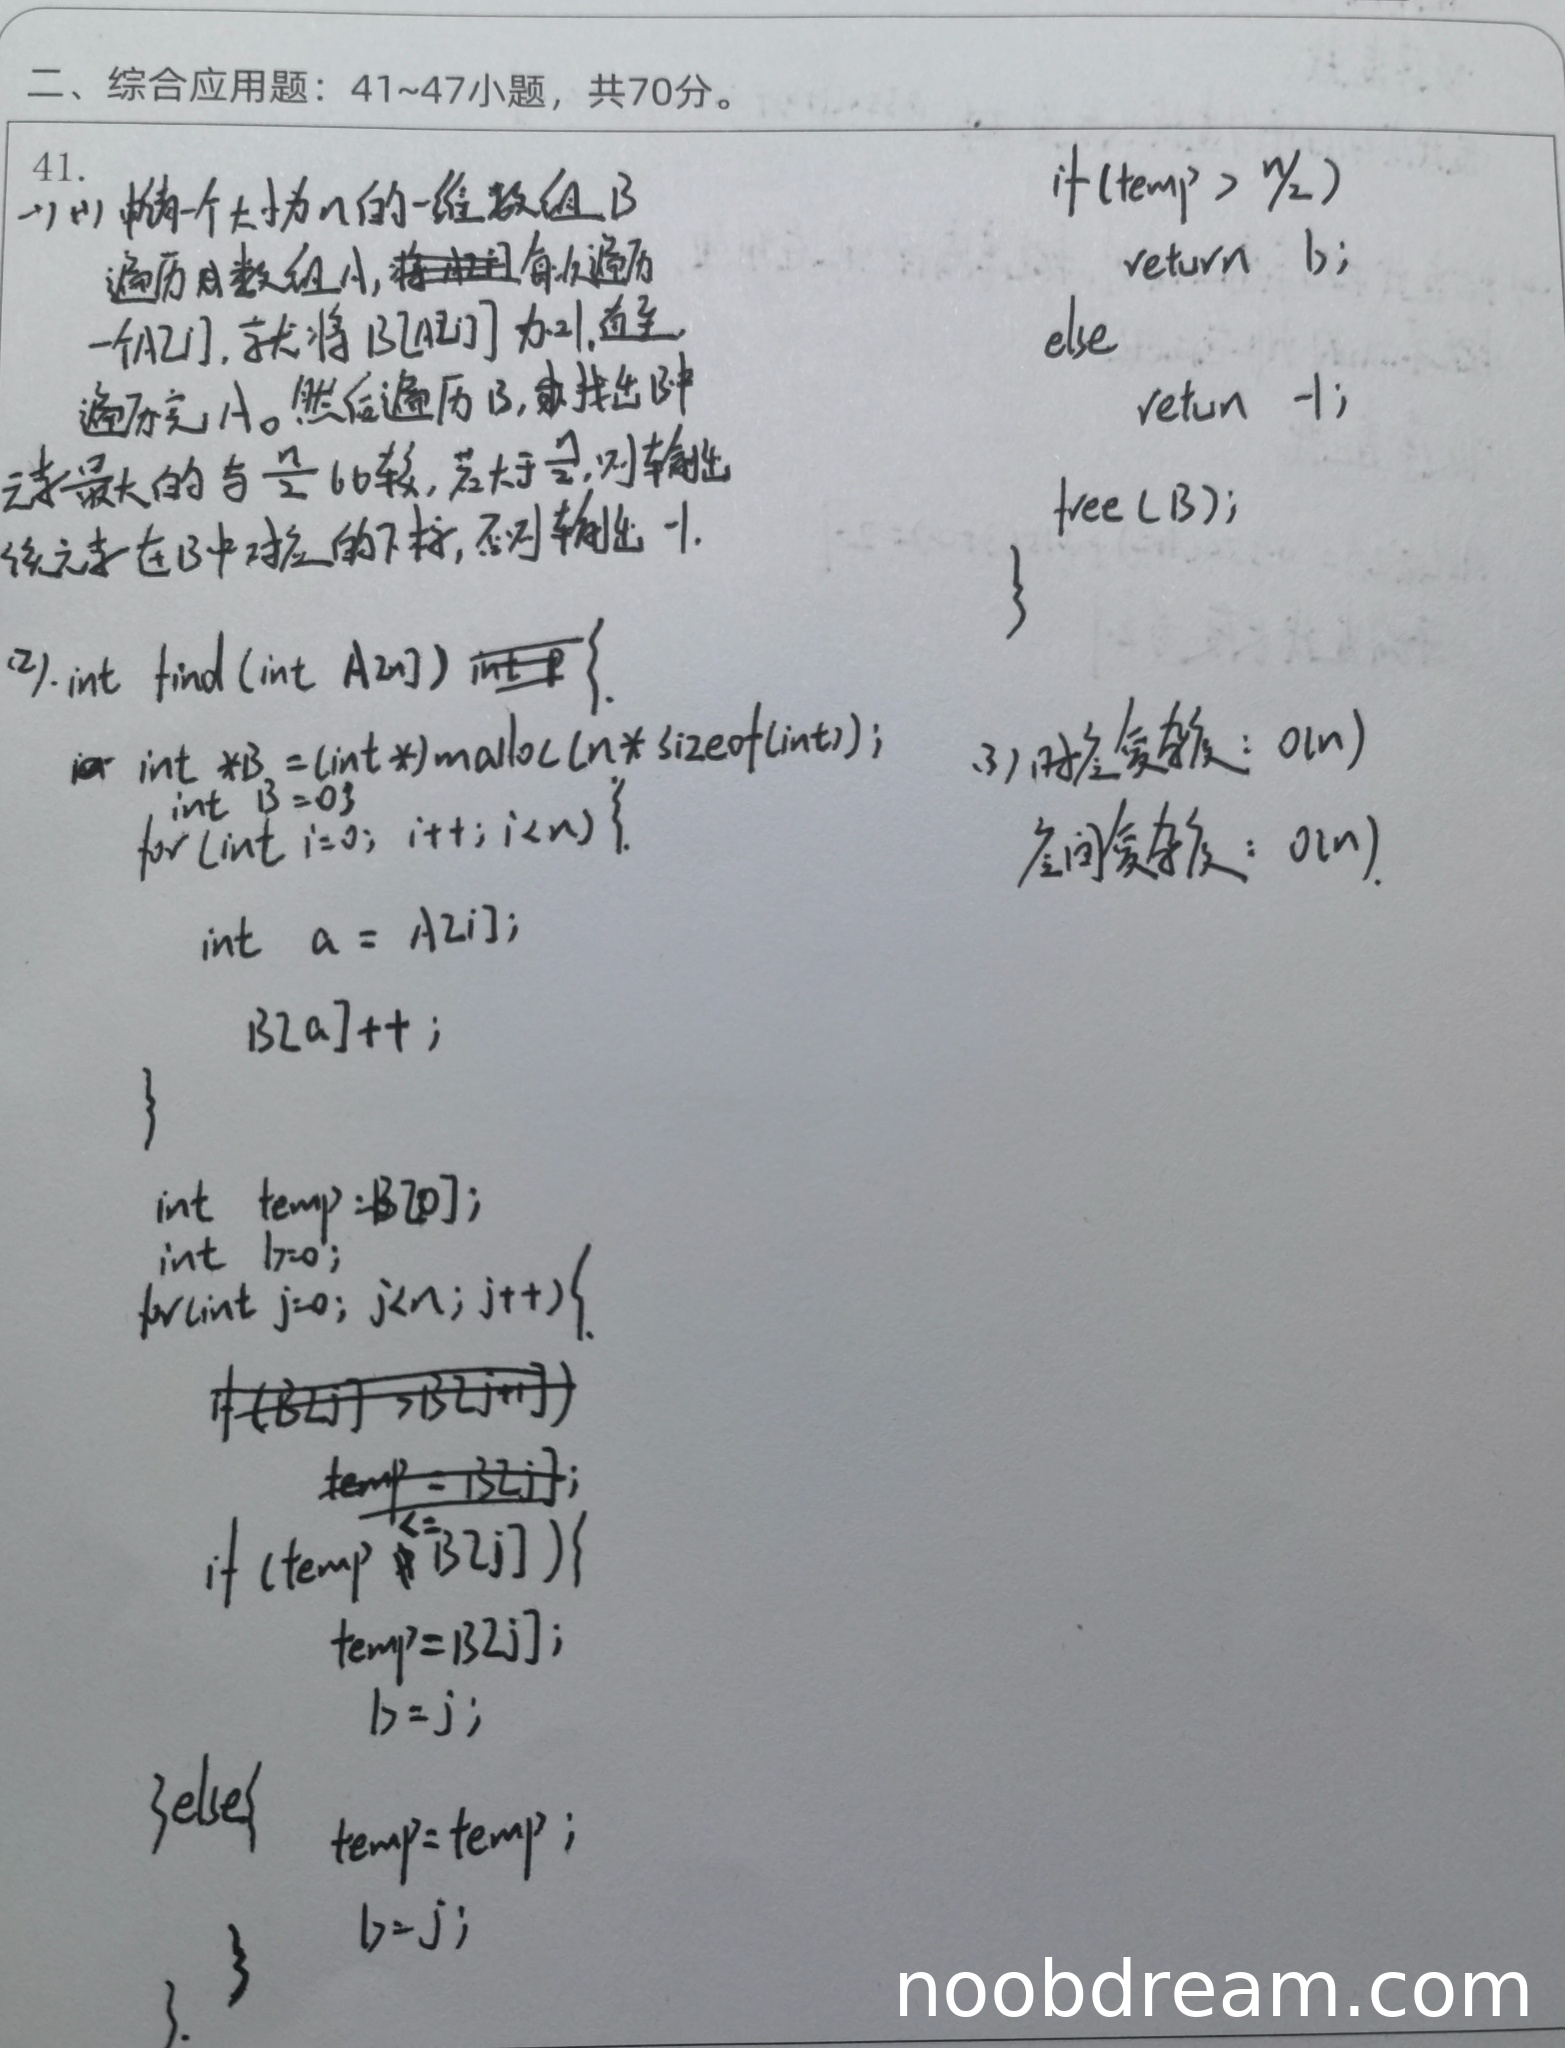 二、综合应用题：41~47小题，共70分。
41.
一个大小为n的一维数组B
遍历数组A，每次遍历
一个A[i]，就将B[A[i]]加1，直至
遍历完A。然后遍历B，找出B中
元素最大的与n/2比较，若大于n/2，则输出
该元素在B中对应的下标，否则输出-1.
(2). int find(int A[n]) {
int *B =(int*)malloc(n*sizeof(int));
int B=0;
for(int i=0; i++; i<n) {
int a = A[i];
B[a]++;
}
int temp=B[0];
int b=0;
for(int j=0; j<n; j++){
if (B[j] >B[j+1])
temp = B[j];
if (temp <= B[j]){
temp=B[j];
b=j;
}else{
temp=temp;
b=j;
}
}.
if(temp > n/2)
return b;
else
retun -1;
free(B);
}
(3) 时空复杂度：O(n)
空间复杂度：O(n).
noobdream.com